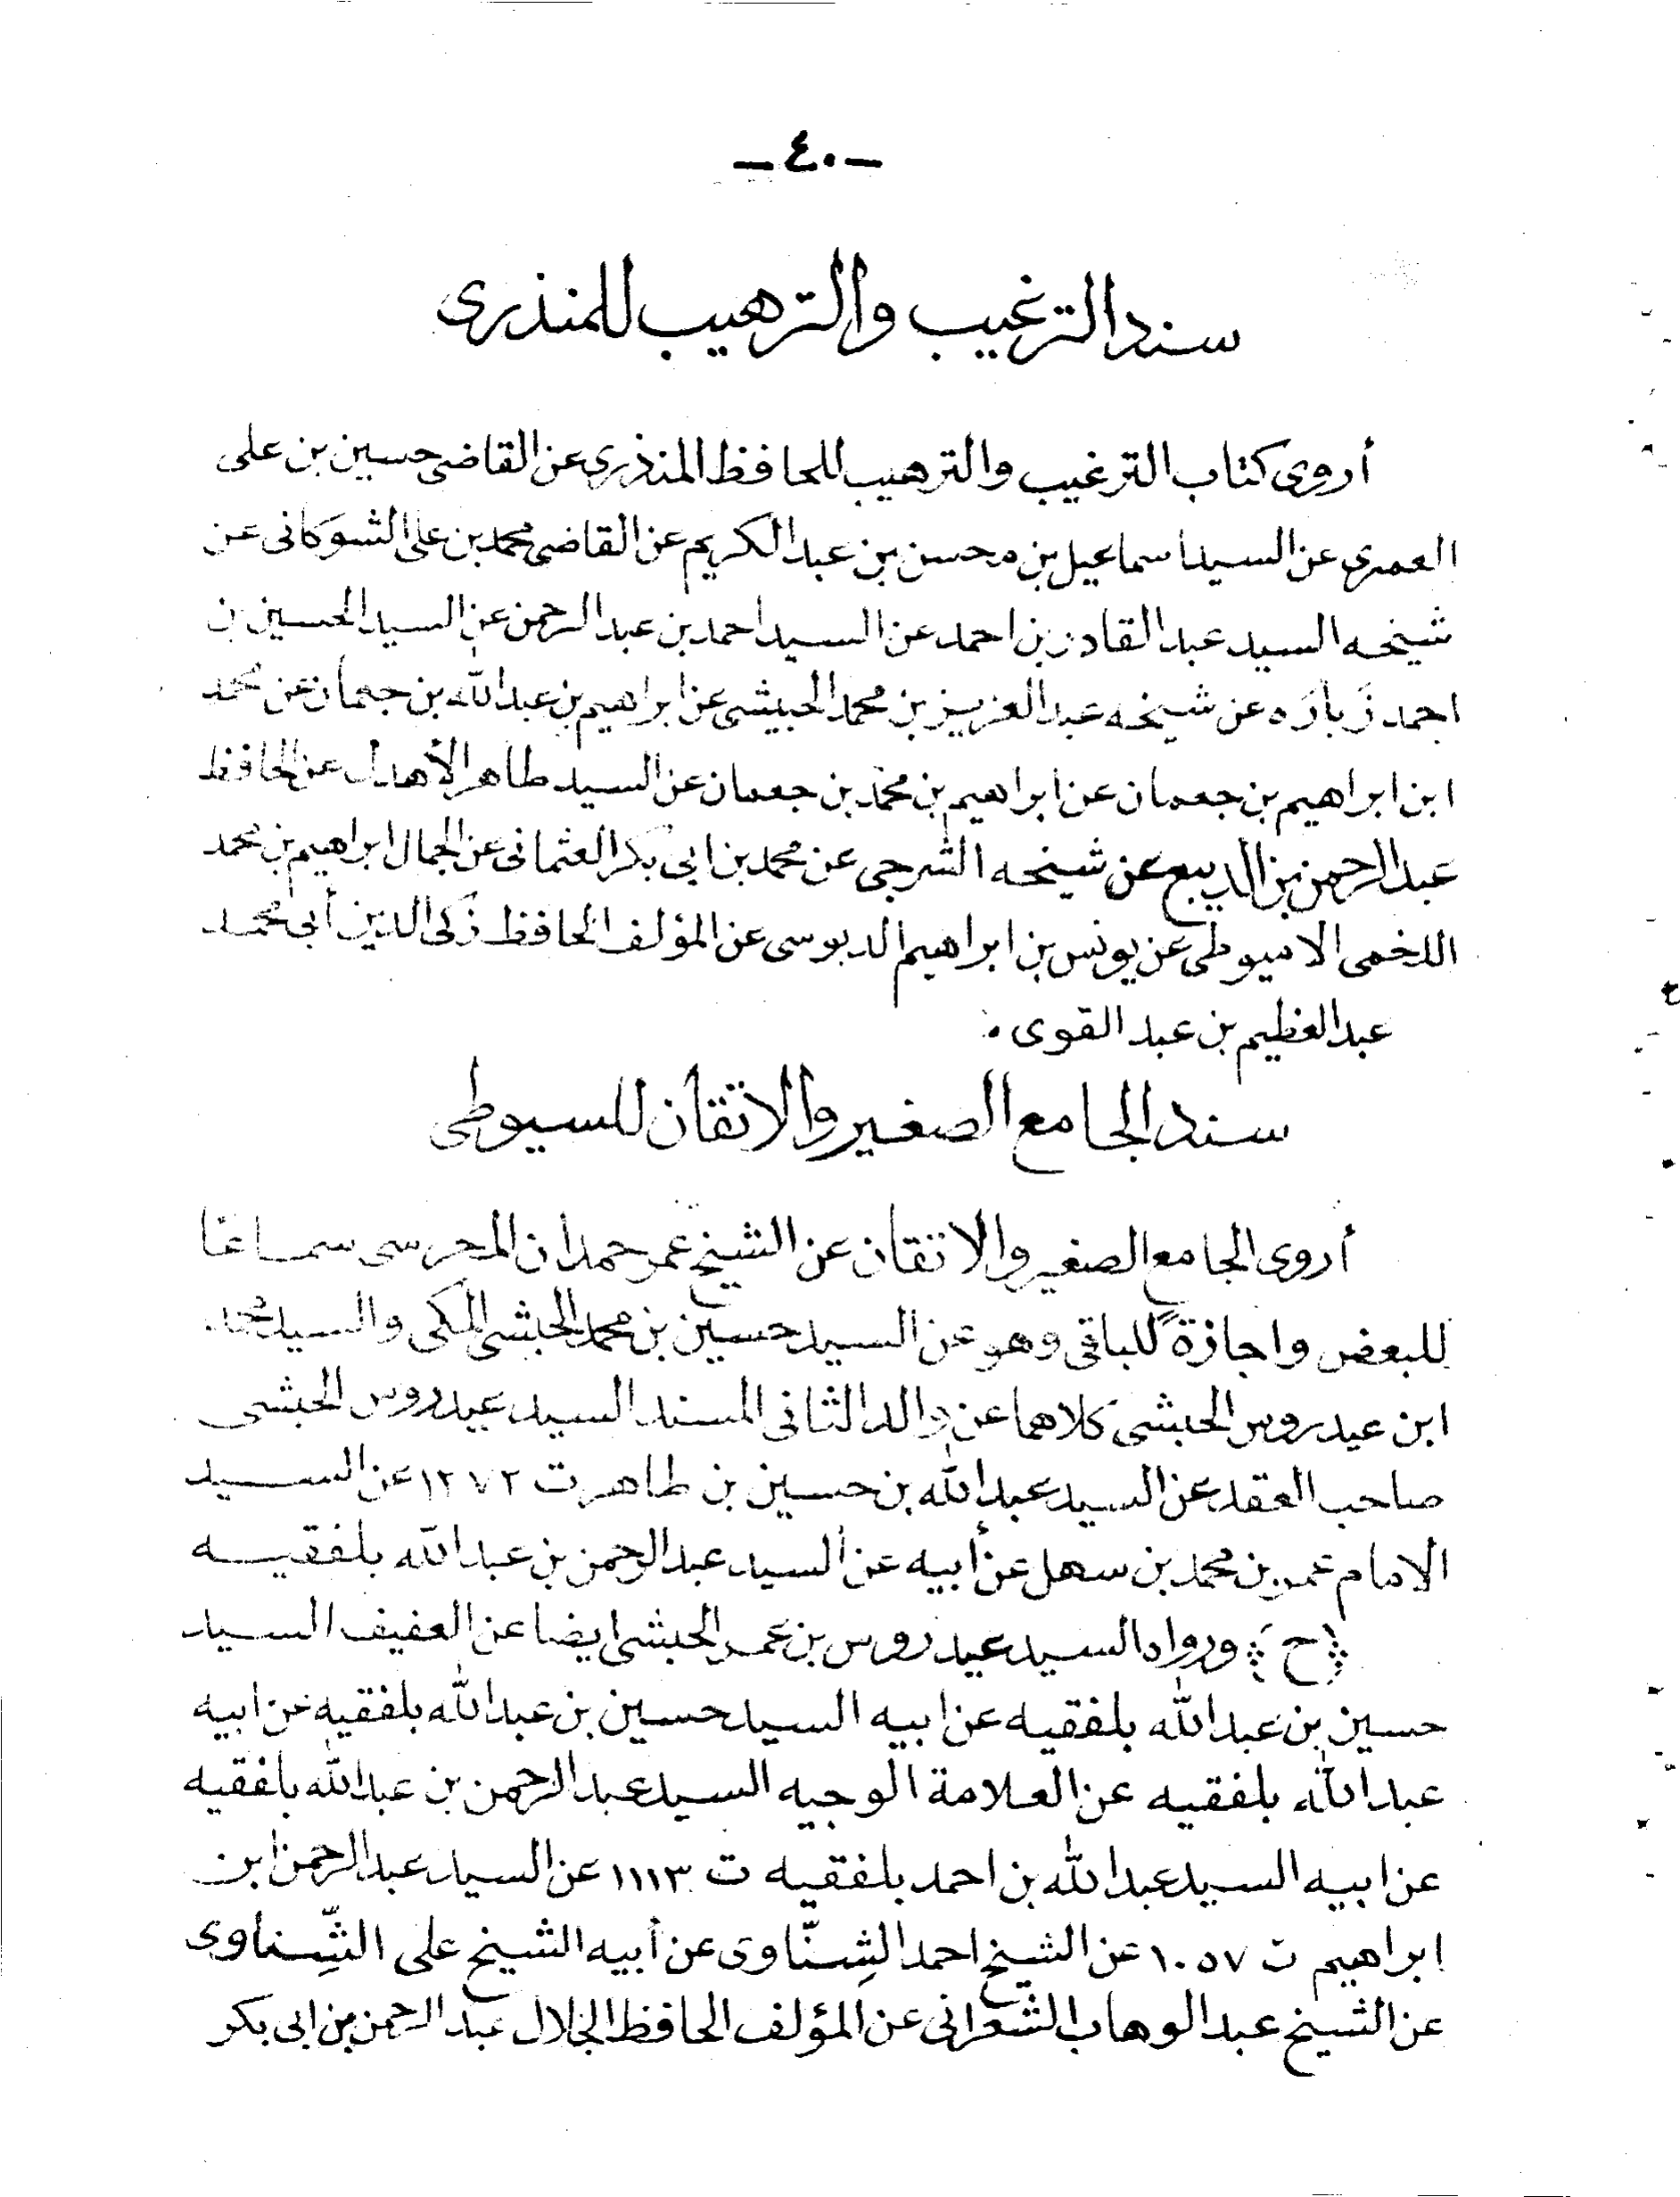 -٤٠-
سند الترغيب والترهيب للمنذرى
أروى كتاب الترغيب والترهيب للحافظ المنذرى عن القاضى حسين بن على
العمرى عن السيد اسماعيل بن محسن بن عبد الكريم عن القاضى محمد بن على الشوكانى عن
شيخه السيد عبد القادر بن احمد عن السيد احمد بن عبد الرحمن عن السيد الحسين بن
احمد زَبارَه عن شيخه عبد العزيز بن محمد الحبيشى عن ابراهيم بن عبد الله بن جعمان عن محمد
ابن ابراهيم بن جعمان عن ابراهيم بن محمد بن جعمان عن السيد طاهر الأهدل عن الحافظ
عبد الرحمن بن الديبع عن شيخه الشرجى عن محمد بن ابى بكر العثمانى عن الجمال ابراهيم بن محمد
اللخمى الاميوطى عن يونس بن ابراهيم الدبوسى عن المؤلف الحافظ زكى الدين أبى محمد
عبد العظيم بن عبد القوى .
سند الجامع الصغير والاتقان للسيوطى
أروى الجامع الصغير والاتقان عن الشيخ عمر حمدان المحرسى سماعًا
للبعض واجازةً للباقى وهو عن السيد حسين بن محمد الحبشى المكى والسيد محمد
ابن عيدروس الحبشى كلاهما عن والد الثانى المسند السيد عيدروس الحبشى
صاحب العقد عن السيد عبد الله بن حسين بن طاهر ت ١٢٧٢ عن السيد
الامام عمر بن محمد بن سهل عن أبيه عن السيد عبد الرحمن بن عبد الله بلفقيه
(ح) ورواه السيد عيدروس بن عمر الحبشى ايضا عن العفيف السيد
حسين بن عبد الله بلفقيه عن ابيه السيد حسين بن عبد الله بلفقيه عن ابيه
عبد الله بلفقيه عن العلامة الوجيه السيد عبد الرحمن بن عبد الله بلفقيه
عن ابيه السيد عبد الله بن احمد بلفقيه ت ١١١٣ عن السيد عبد الرحمن ابن
ابراهيم ت ١٠٥٧ عن الشيخ احمد الشِنّاوى عن أبيه الشيخ على الشِّناوى
عن الشيخ عبد الوهاب الشعرانى عن المؤلف الحافظ الجلال عبد الرحمن بن ابى بكر